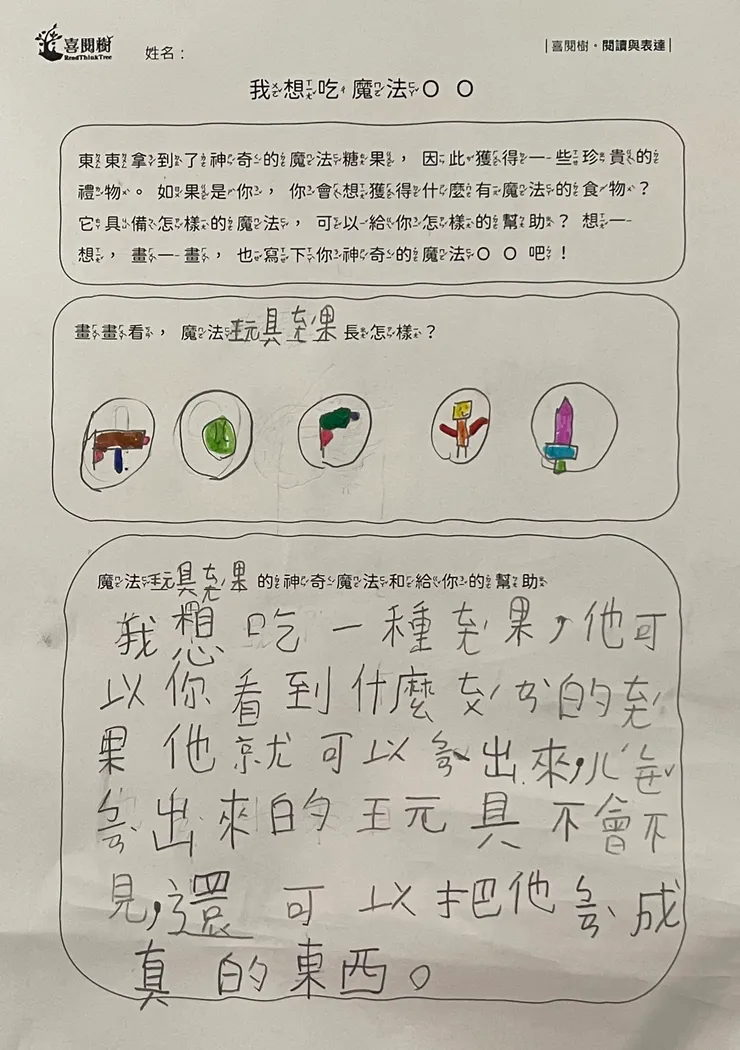 喜閱樹
ReadThinkTree
姓名：
|喜閱樹・閱讀與表達|
我想吃魔法〇〇
東東拿到了神奇的魔法糖果，因此獲得一些珍貴的
禮物。如果是你，你會想獲得什麼有魔法的食物？
它具備怎樣的魔法，可以給你怎樣的幫助？想一
想，畫一畫，也寫下你神奇的魔法〇〇吧！
畫畫看，魔法玩具ㄊㄤˊ果長怎樣？
魔法玩具ㄊㄤˊ果的神奇魔法和給你的幫助
我想吃一種ㄊㄤˊ果，他可
以你看到什麼ㄉㄨㄥ ㄒㄧ的ㄊㄤˊ
果他就可以ㄅㄧㄢˋ出來，ㄦˊ每
ㄅㄧㄢˋ出來的玩具不會不
見，還可以把他ㄅㄧㄢˋ成
真的東西。